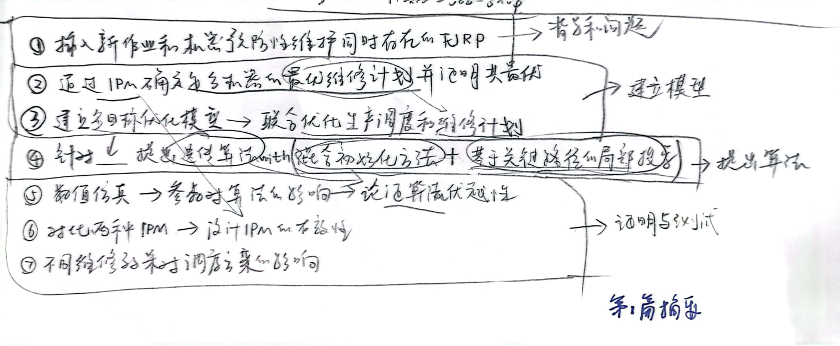 ① 插入新作业和机器预防性维护同时存在的FJRP → 背景和问题
② 通过IPM确定每台机器的最优维修计划并证明其最优
③ 建立多目标优化模型 → 联合优化生产调度和维修计划 → 建立模型
④ 针对↓ 提出遗传算法with(混合初始化方法 + 基于关键路径的局部搜索) → 提出算法
⑤ 数值仿真 → 参数对算法的影响 → 论证算法优越性
⑥ 对比两种IPM → 设计IPM的有效性 → 证明与测试
⑦ 不同维修政策对调度方案的影响
第1篇摘要